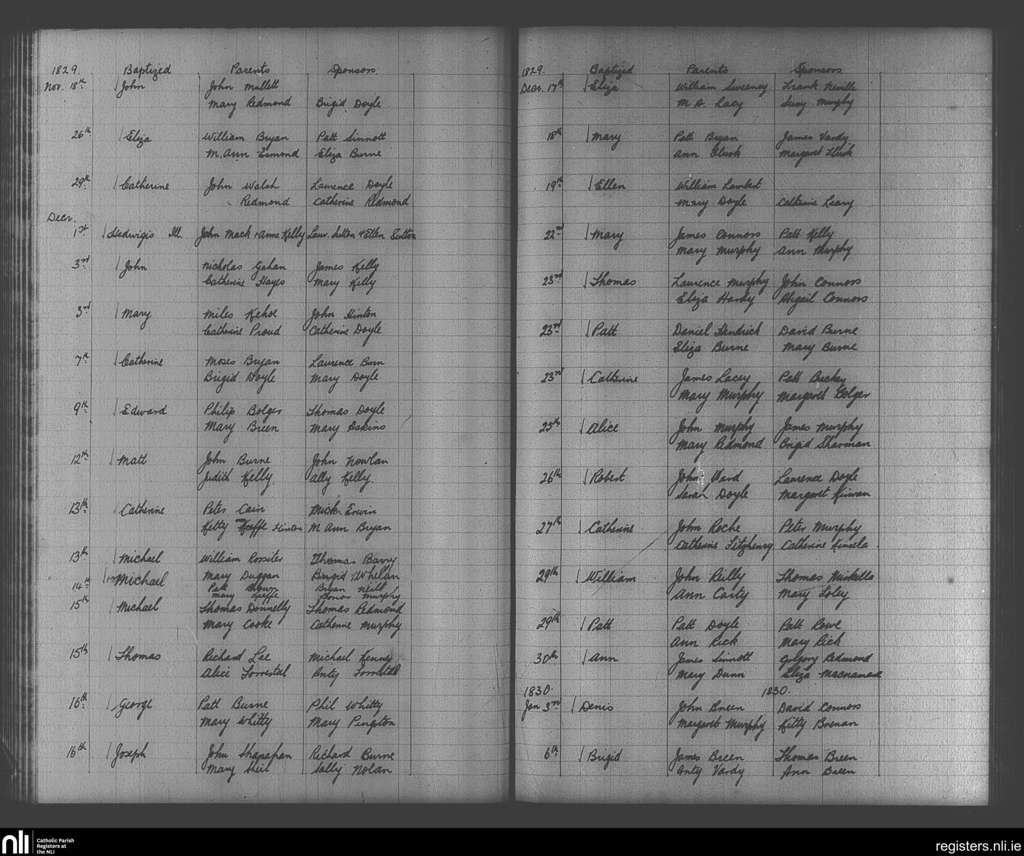 1829. Baptized Parents Sponsors.
Nov. 18th John John Mullett
Mary Redmond Brigid Doyle
26th Eliza William Bryan Patt Sinnott
M. Ann Esmond Eliza Burne
29th Catherine John Walsh Laurence Doyle
Redmond Catherine Redmond
Decr.
1st Hedwigis Ill. John Mack & Anne Kelly Laur. Sutton & Ellen Sutton
3rd John Nicholas Gahan James Kelly
Catherine Hayes Mary Kelly
3rd Mary Miles Kehoe John Hinton
Catherine Proud Catherine Doyle
7th Catherine Moses Bryan Laurence
Brigid Doyle Mary Doyle
9th Edward Philip Bolger Thomas Doyle
Mary Breen Mary
12th Matt John Burne John Nowlan
Judith Kelly Ally Kelly
13th Catherine Peter Cain Mick Erwin
Kitty Keeffe Hinton M. Ann Bryan
13th Michael William Rossiter Thomas Barry
Mary Duggan Brigid Whelan
14th Michael Patt Brown Bryan Neill
Mary Keeffe Murphy
15th Michael Thomas Donnelly Thomas Redmond
Mary Cooke Catherine Murphy
15th Thomas Richard Lee Michael Kenny
Alice Forrestal Anty Forrestal
16th George Patt Burne Phil Whitty
Mary Whitty Mary Pington
16th Joseph John Shanahan Richard Burne
Mary Sheil Sally Nolan
1829. Baptized Parents Sponsors
Decr. 17th Eliza William Sweeney Frank Neville
M. A. Lacy Susy Murphy
18th Mary Patt Bryan James Vardy
Ann Margaret
19th Ellen William Lambert
Mary Doyle Catherine Leary
22nd Mary James Connors Patt Kelly
Mary Murphy Ann Murphy
23rd Thomas Laurence Murphy John Connors
Eliza Hardy Abigail Connors
23rd Patt Daniel Hendrick David Burne
Eliza Burne Mary Burne
23rd Catherine James Lacey Patt Buckey
Mary Murphy Margaret Bolger
25th Alice John Murphy James Murphy
Mary Redmond Brigid Sharman
26th Robert John Ward Laurence Doyle
Sarah Doyle Margaret Kirwan
27th Catherine John Roche Peter Murphy
Catherine Fitzhenry Catherine Kinsela
29th William John Reilly Thomas
Ann Carty Mary Foley
29th Patt Patt Doyle Patt Rowe
Ann Kick Mary Kick
30th Ann James Sinnott Gregory Redmond
Mary Dunn Eliza Macnamara
1830. 1830.
Jan 3rd Denis John Breen David Connors
Margaret Murphy Kitty Brenan
6th Brigid James Breen Thomas Breen
Anty Vardy Ann Breen
nli Catholic Parish
Registers at
the NLI
registers.nli.ie